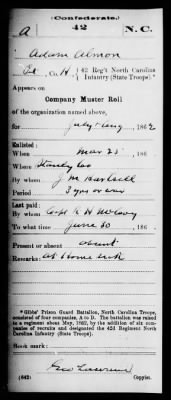 (Confederate.)
A 42 N. C.
Adam Almon
Pvt, Co. H, 42 Reg't North Carolina
Infantry (State Troops).*
Appears on
Company Muster Roll
of the organization named above,
for July & Aug, 1862
Enlisted:
When Mar 25, 186
Where Stanly Co
By whom J. M. Hartsell
Period 3 yrs or war
Last paid:
By whom Capt
To what time June 30, 186
Present or absent absent
Remarks: at Home sick
*Gibbs' Prison Guard Battalion, North Carolina Troops,
consisted of four companies, A to D. The battalion was raised
to a regiment about May, 1862, by the addition of six com-
panies of recruits and designated the 42d Regiment North
Carolina Infantry (State Troops).
Book mark:
(642) Copyist.